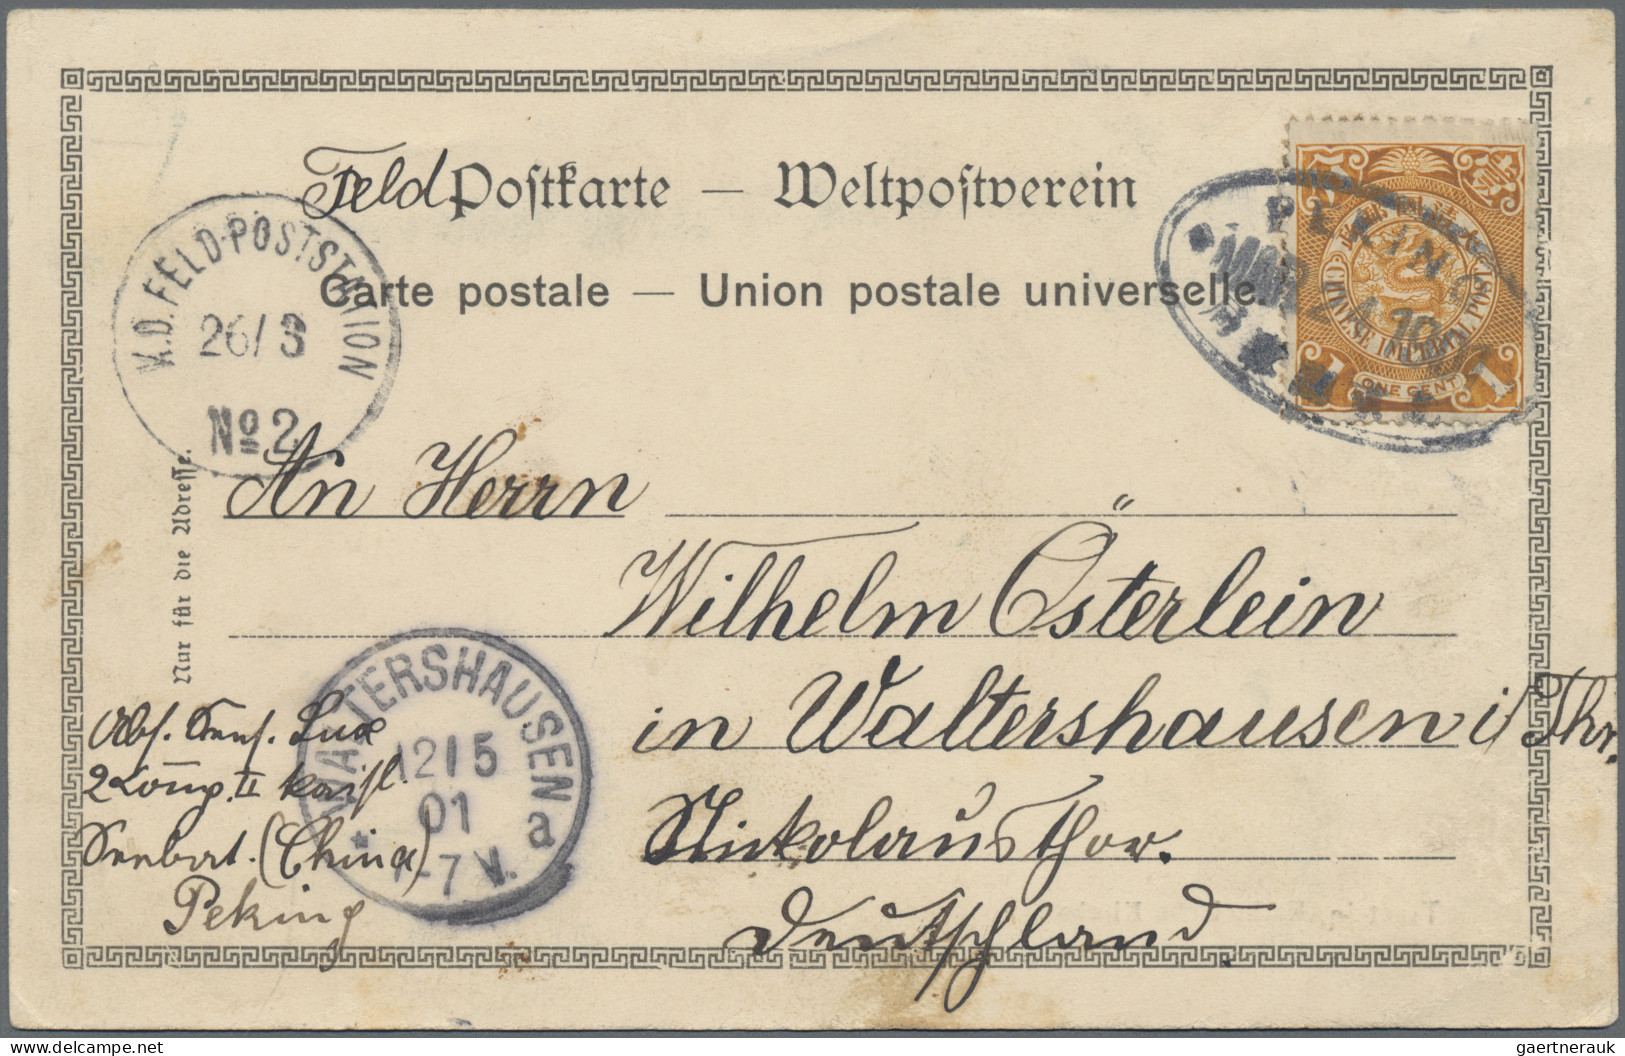 Feld Postkarte — Weltpostverein
Carte postale — Union postale universelle.
K.D. FELD-POSTSTATION
26/3
No 2
PEKING
MAR
CHINESE IMPERIAL POST
1 ONE CENT 1
Nur für die Adresse.
An Herrn
Wilhelm Österlein
in Waltershausen i/Thr.
Nickolausthor.
Deutschland
WALTERSHAUSEN
12/5
01
-7 V.
a
Abs. Lux
2 Komp. II
(China)
Peking
gaertnerauk